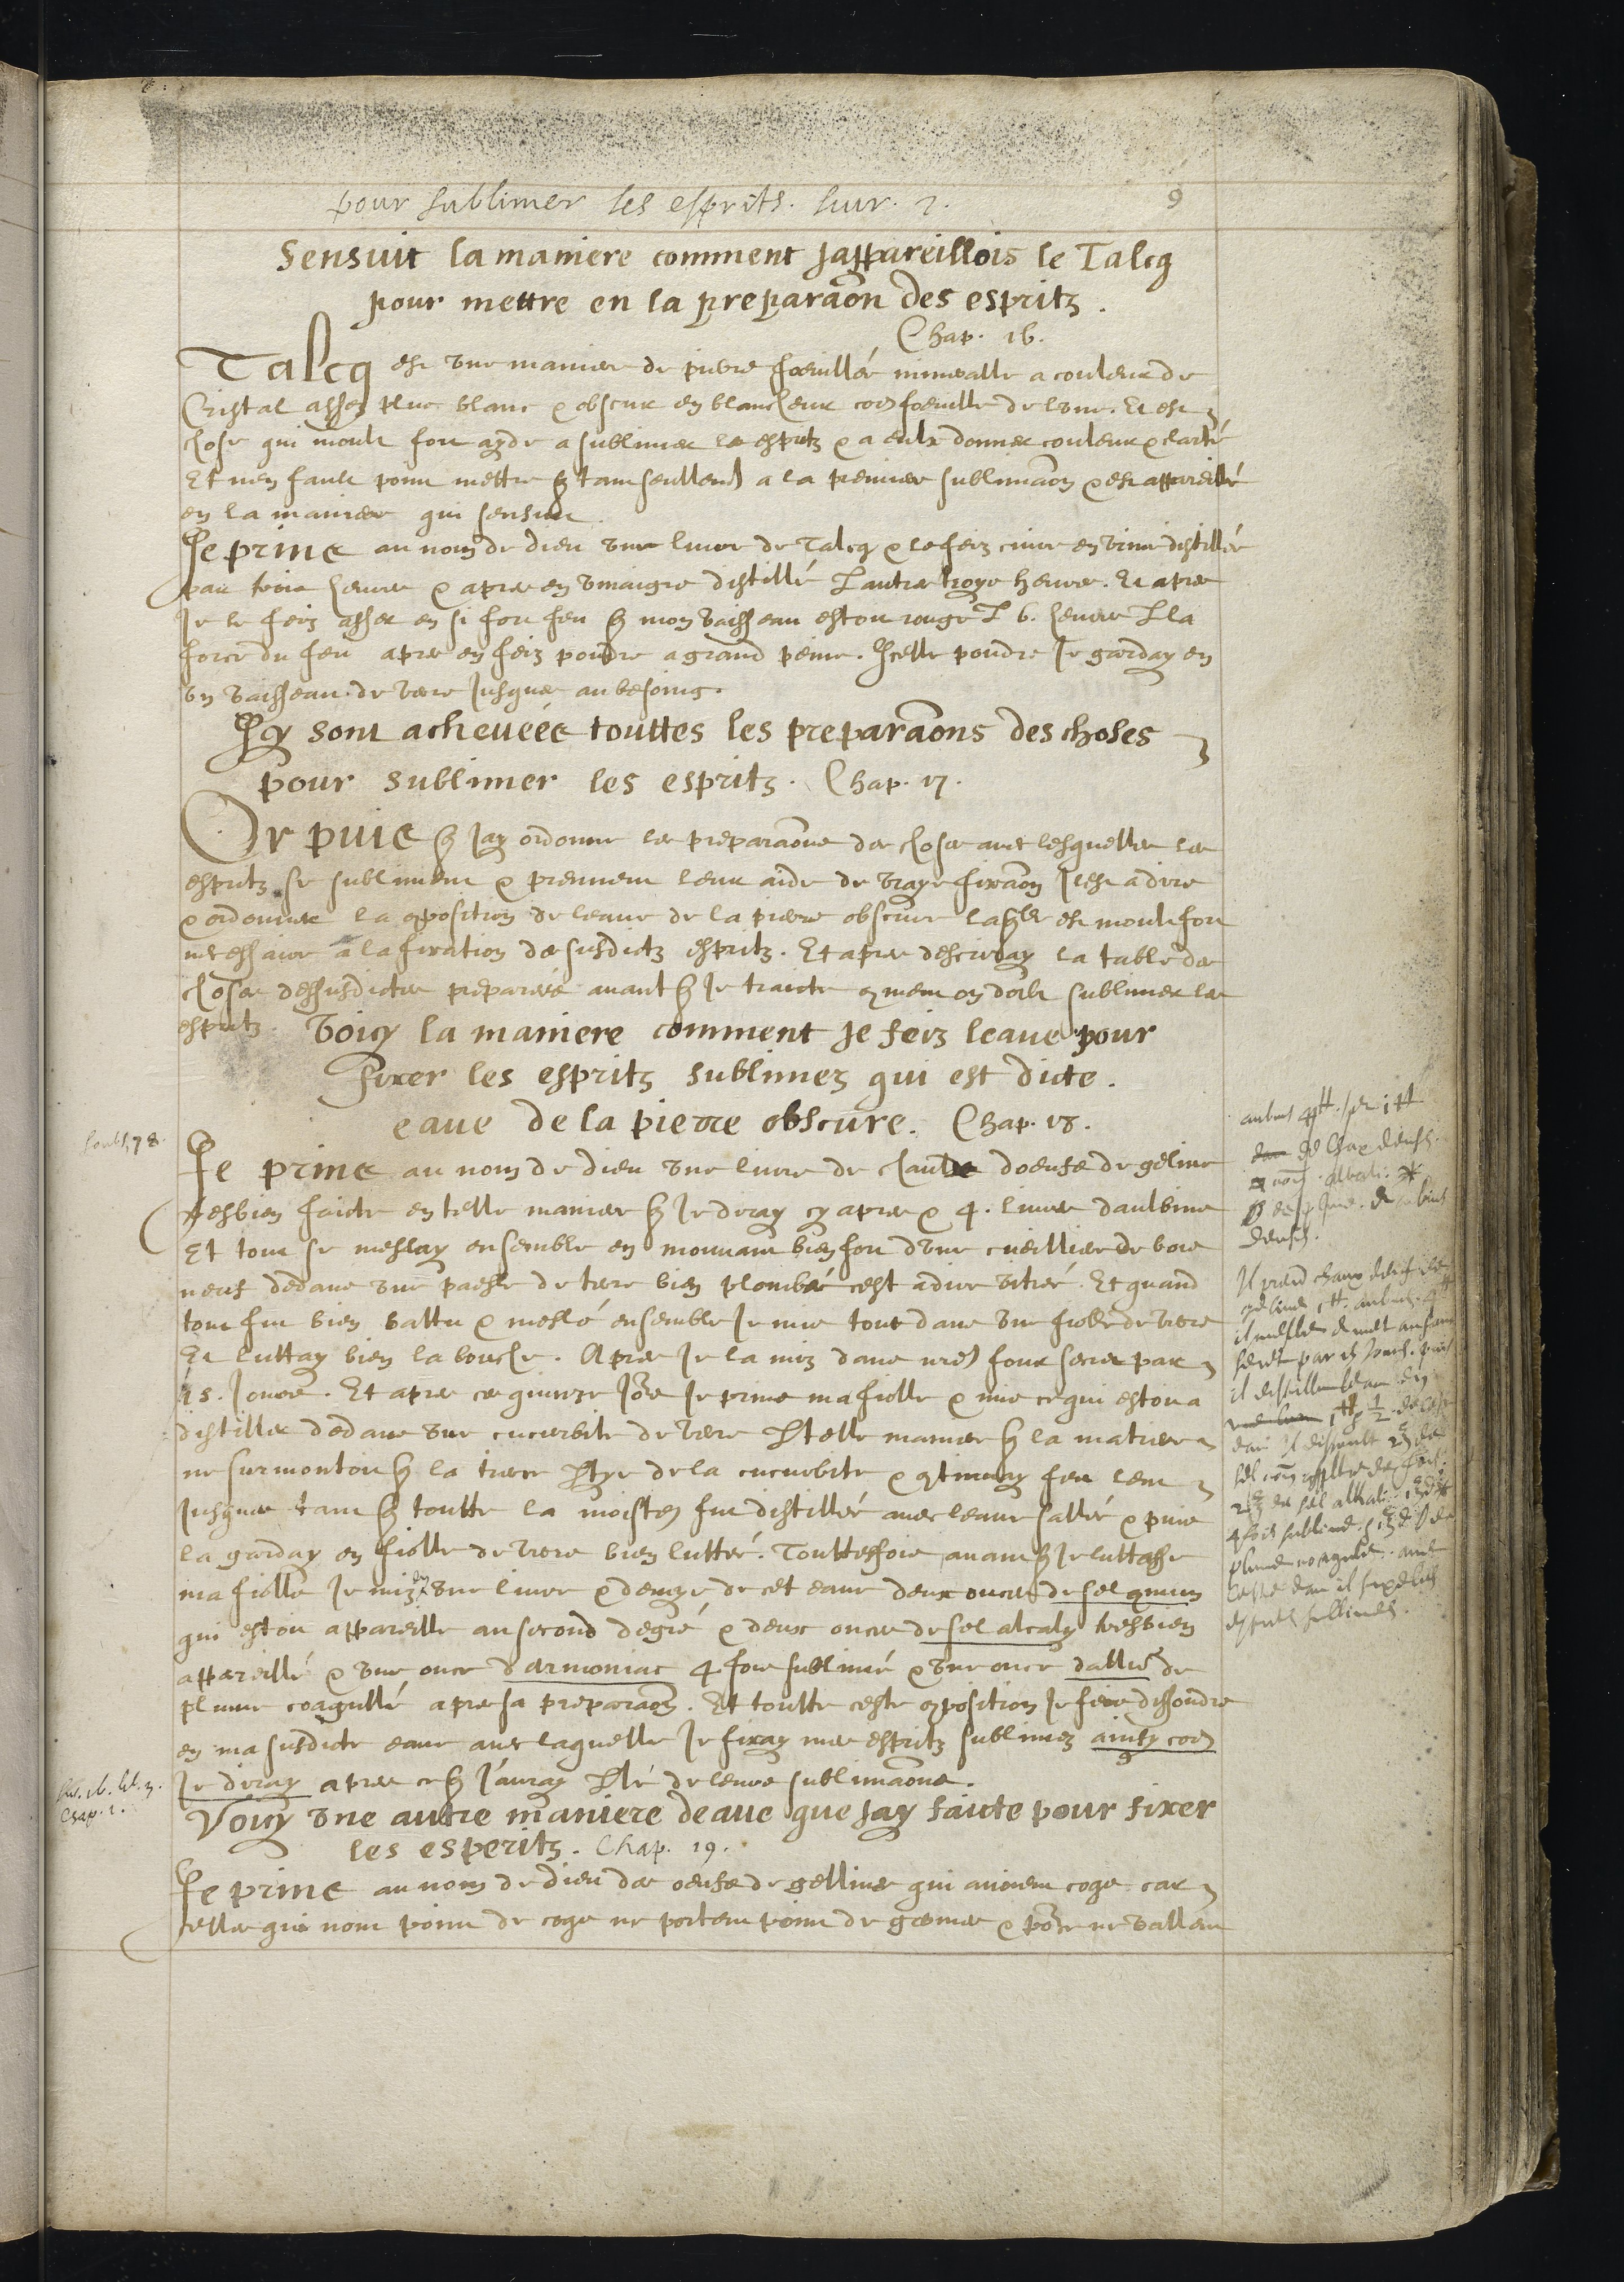 pour sublimer les esprits. liur. 2. 9
Sensuit la maniere comment jappareillois le Talcq
pour mettre en la preparaõn des espritz.
Chap. 16.
Talcq est une maniere de pierre foeuillée mineralle a couleur de
Cristal assez plus blanc & obscur en blancheur coe foeuille de lune. Et est
chose qui moult fort ayde a sublimer les espritz & a eulx donner couleur & clarté
Et nen fault point mettre q tant seullemt a la premiere sublimaõn & est appareillé
en la maniere qui sensuit.
Je prins au nom de dieu une livre de Talcq & le feiz cuire en urine distillée
par trois heures & apres en vinaigre distillé autres troys heures. Et apres
Je le feiz asser en si fort feu q mon vaisseau estoit rouge 6. heures la
force du feu apres en feiz poudre a grand peine. Icelle poudre Je garday en
un vaisseau de verre Jusques au besoing.
Icy sont achevéés touttes les preparaõns des choses
pour sublimer les espritz. Chap. 17.
Or puis q Jay ordonné les preparaõns des choses avec lesquelles les
espritz se subliment & prennent leur aide de vraye fixaõn Jest a dire
& ordonner la 9position de leaue de la pierre obscure laqlle est moult fort
necessaire a la fixation des susdictz espritz. Et apres descriray la table des
choses dessusdictes preparéés avant q Je traicte 9ment on doibt sublimer les
espritz. Voicy la maniere comment Je feiz leaue pour
fixer les espritz sublimez qui est dicte.
eaue de la pierre obscure. Chap. 18.
Je prins au nom de dieu une livre de chaulx doeufs de geline
tresbien faicte en telle maniere q Je diray cy apres & 4. livres daulbins
Et tout se meslay ensemble en mouvant bien fort dune cueilliere de bois
neuf dedans une paesle de terre bien plombéé cest a dire vitréé. Et quand
tout fut bien battu & meslé ensemble Je mis tout dans une fiolle de verre
Et luttay bien la bouche. Apres Je la miz dans nre four secret par
15. Jours. Et apres ces quinze Jors Je prins ma fiolle & mis ce qui estoit a
distiller dedans une cucurbite de verre telle maniere q la matiere
ne surmontoit q la tierce ptye de la cucurbite & 9tinuay feu lent
Jusques tant q toutte la moisteur fut distillée avec leaue salléé & puis
la garday en fiolle de verre bien lutteé. Touttesfois avant q Je luttasse
ma fiolle Je miz en une livre & demye de cet eaue deux onces de sel 9mun
qui estoit appareille au second degré & deux onces de sel alcaly tresbien
appareillé & une once darmoniac 4 fois sublimé & une once dallun de
plume coagullé apres sa preparaõn. Et toutte ceste 9position Je feis dissoudre
en ma susdicte eaue avec laquelle Je fixay mes espritz sublimez ainsy coe
Je diray apres ce q J'auray plé de leurs sublimaõns.
Voicy une autre maniere deaue que Jay faicte pour fixer
les esperitz. Chap. 19.
Je prins au nom de dieu des oeufs de gellines qui avoient coqs. car
celles qui nont point de coqs ne portent point de germes & pource ne vallent
aubins 4 tt. sur 1 tt
de chaux deufs.
Il prend chaux deufs de
gelines 1 tt. aubins. 4 tt
il mesle & met au four
secret par 15 jours. puis
4 fois sublimé
plume coagulé. avec
ceste eau il fixe les
esprits sublimés.
Chap. 1.